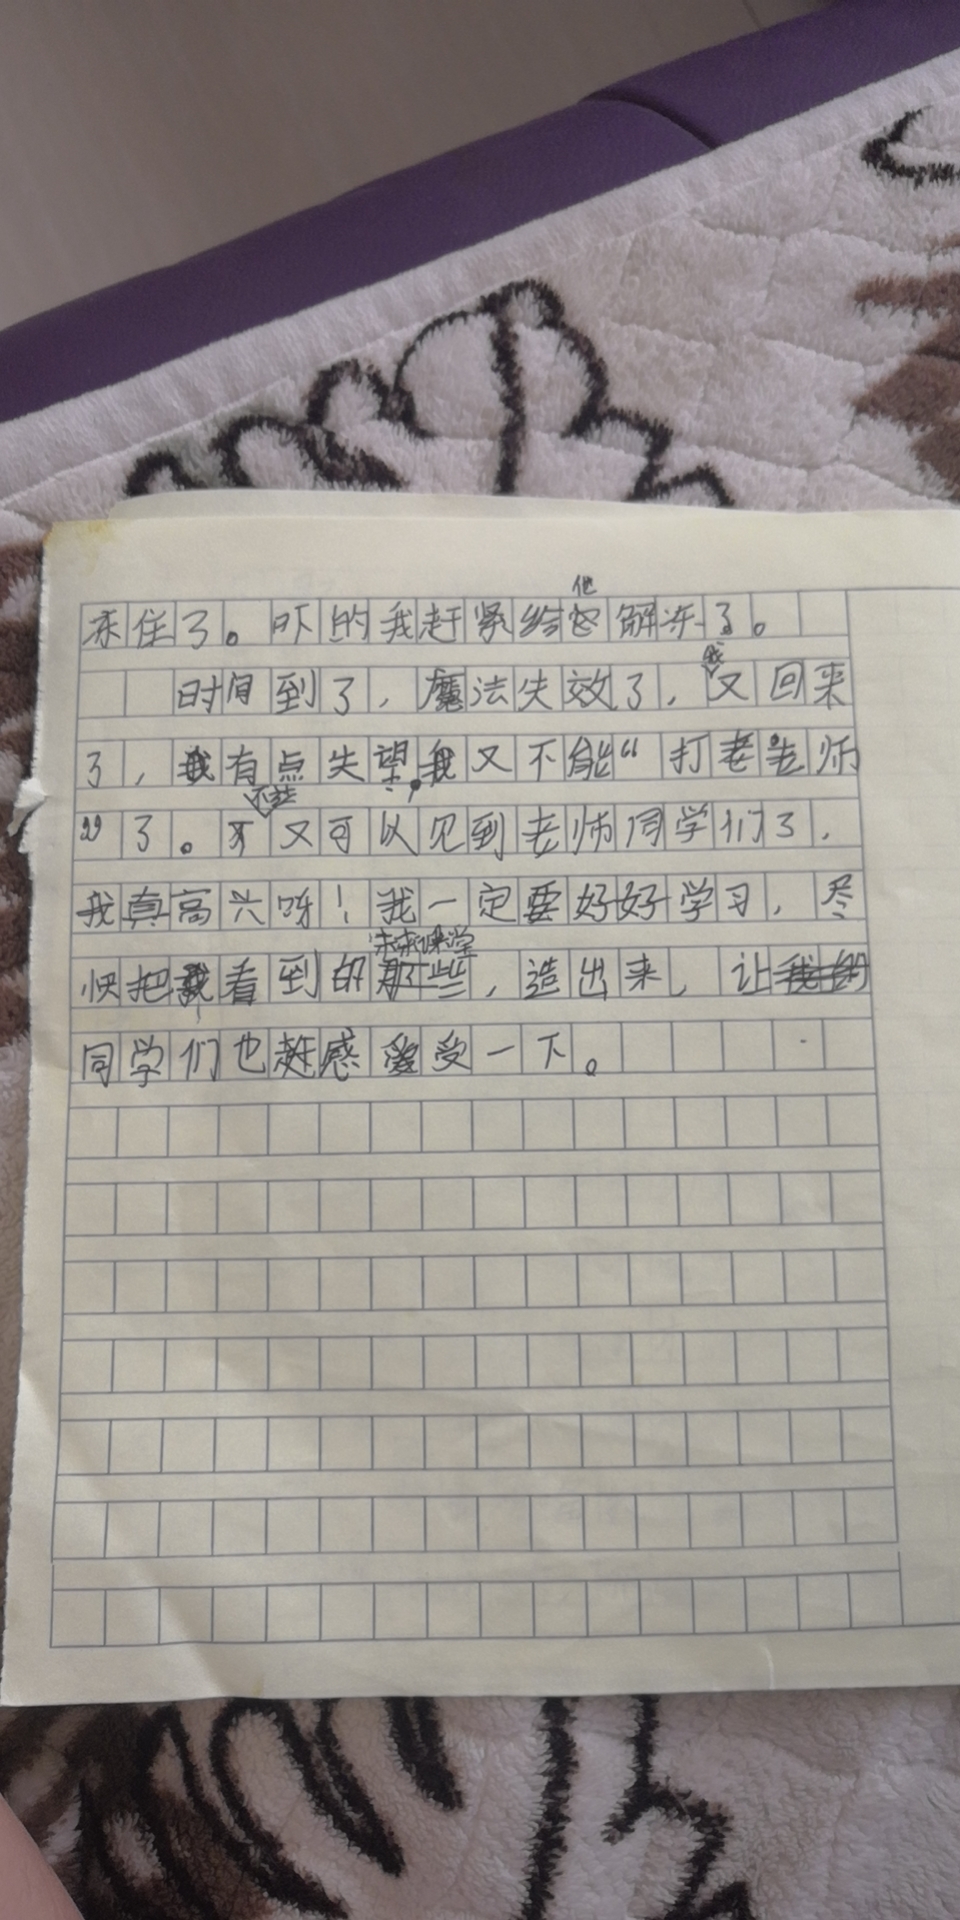 冻住了。吓的我赶紧给他解冻了。
时间到了，魔法失效了，我又回来
了，我有点失望，我又不能“打老师
”了。不过又可以见到老师同学们了，
我真高兴呀！我一定要好好学习，尽
快把我看到的未来课堂，造出来，让
同学们也感受一下。